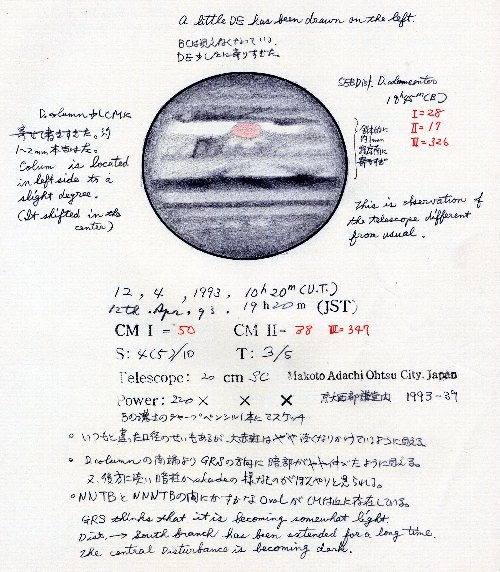 A little DE has been drawn on the left.
BCは見えなくなっている。
SEB Dist. D. column center
19h 45m (CB)
I = 28
II = 17
III = 326
D. column 少し CMに
1~2mm
Colum is located
in left side to a
slight degree.
(It shifted in the
center)
This is observation of
the telescope different
from usual.
12, 4, 1993, 10h 20m (U.T.)
12th. Apr, 93. 19h 20m (JST)
CM I = 50 CM II = 38 III = 347
S: 4(5)/10 T: 3/5
Telescope: 20 cm SC Makoto Adachi Ohtsu City. Japan
Power: 220 × × × 1993-39
の濃さのシャープペンシル1本にてスケッチ
。いつもと違った口径のせいもあるが、大赤斑はやや淡くなりかけているように見える
。D. columnの南端よりGRSの方向に暗部が付いたように見える。
又、後方に淡い暗柱かshadeの様なものがぼんやりと見られる。
。NNTBとNNNTBの間にかすかなOvalがCM付近に存在している。
GRS thinks that it is becoming somewhat light.
Dist. → South branch has been extended for a long time.
The central Disturbance is becoming dark.